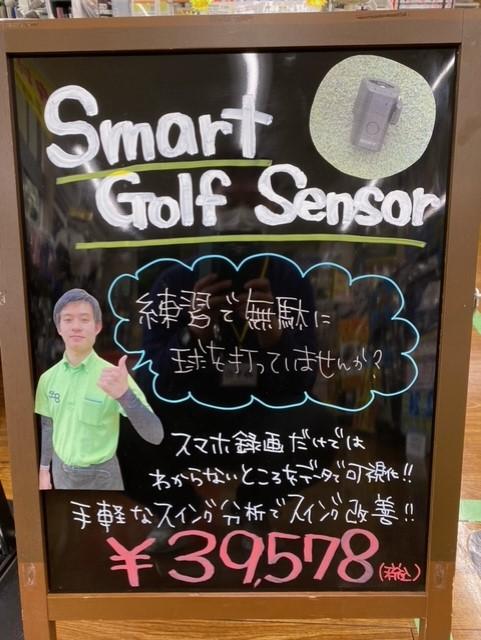 Smart
Golf Sensor
練習で無駄に
球を打っていませんか?
スマホ録画だけでは
わからないところをデータで可視化!!
手軽なスイング分析でスイング改善!!
¥39,578(税込)